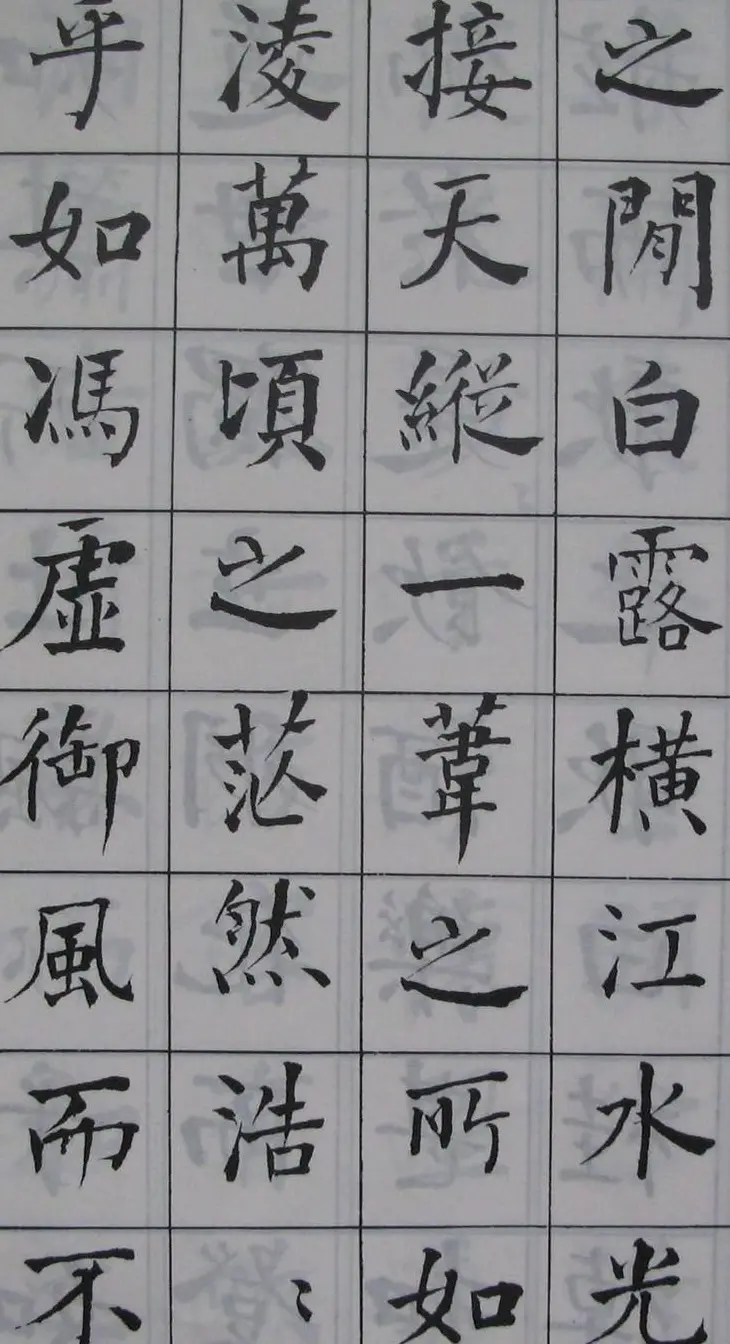 之閒白露橫江水光
接天縱一葦之所如
淩萬頃之茫然浩〻
乎如馮虛御風而不